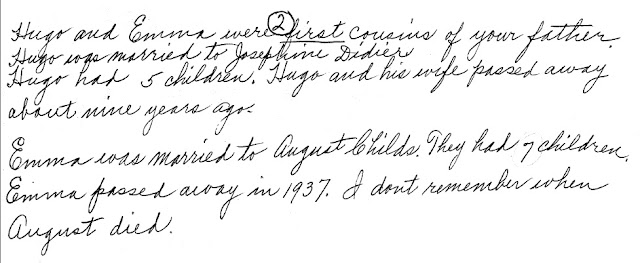 Hugo and Emma were 2 first cousins of your father.
Hugo was married to Josephine Didier
Hugo had 5 children. Hugo and his wife passed away
about nine years ago.
Emma was married to August Childs. They had 7 children.
Emma passed away in 1937. I dont remember when
August died.